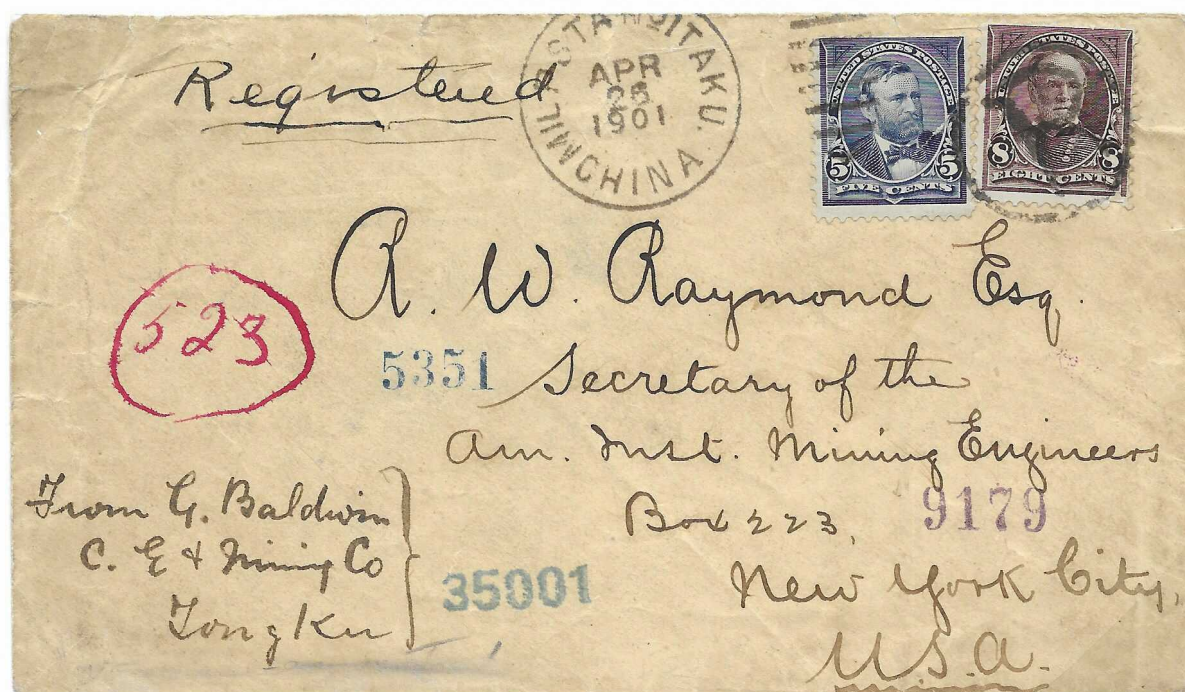 Registered
MIL. STA. No 1 TAKU. CHINA
APR
25
1901
UNITED STATES POSTAGE
5 5
FIVE CENTS
UNITED STATES POSTAGE
8 8
EIGHT CENTS
R. W. Raymond Esq.
523
5351
Secretary of the
Am. Inst. Mining Engineers
Box 223,
9179
New York City,
U.S.A.
From G. Baldwin
C. E & Mining Co
Tong Ku
35001